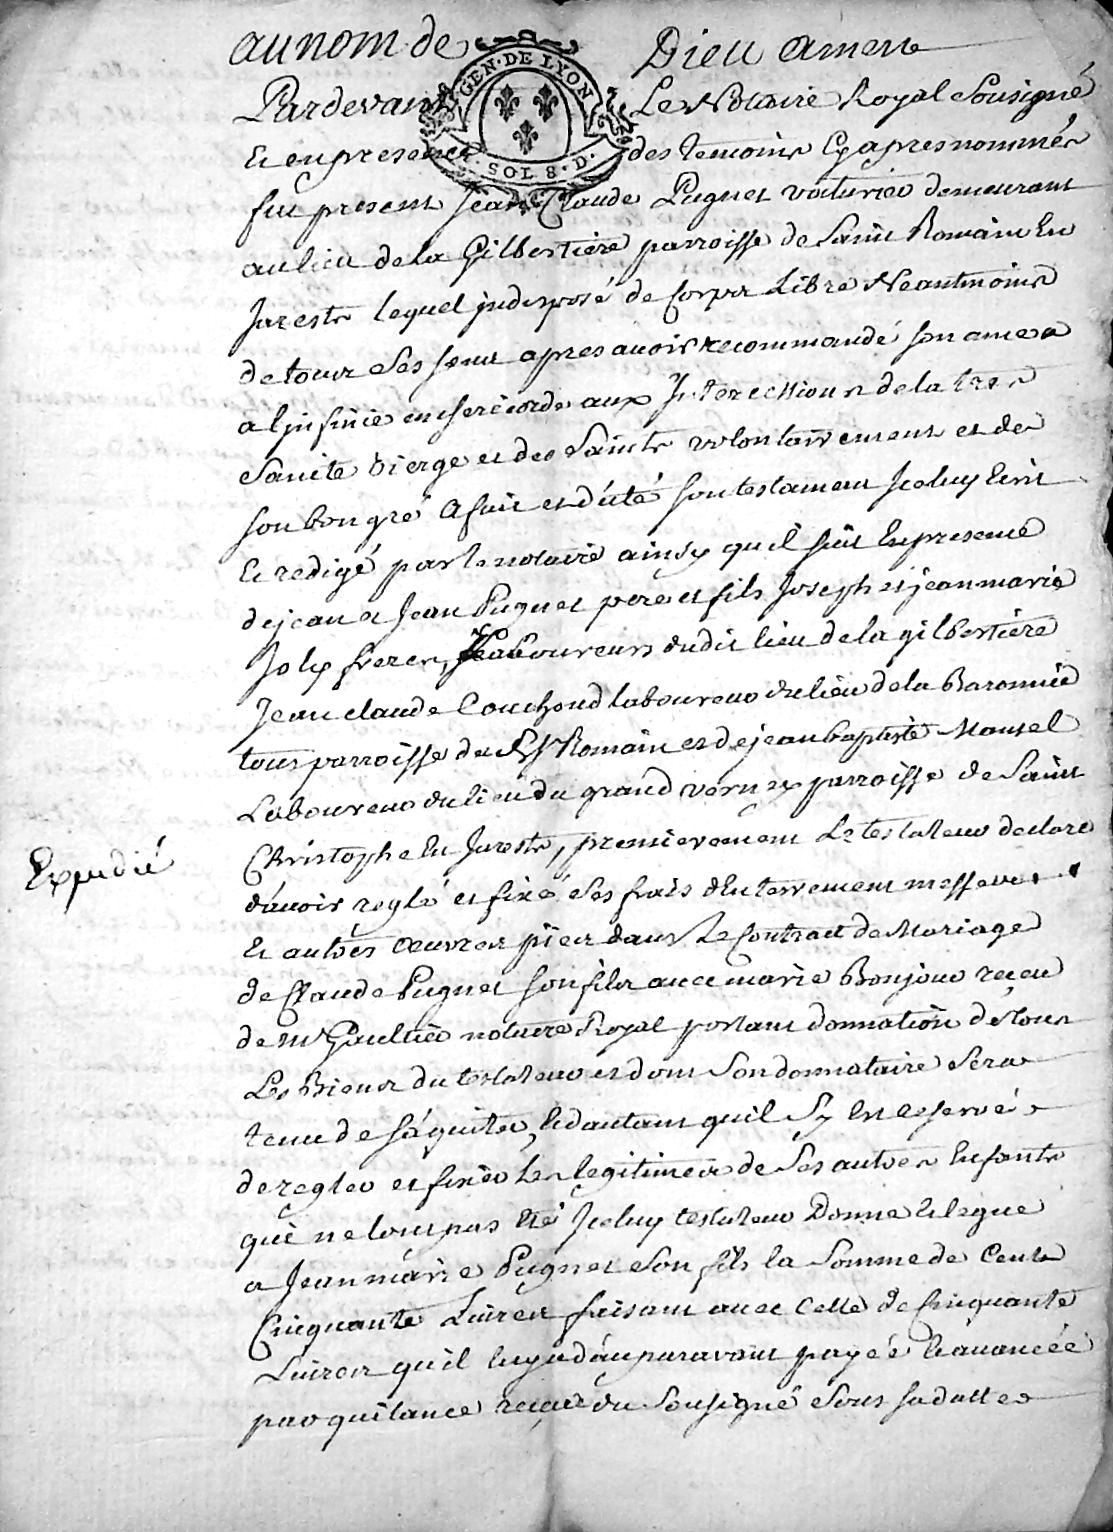 au nom de Dieu amen
GEN · DE LYON
SOL 8 · D ·
Pardevant Le Notaire Royal Sousigné
Et en presence des temoins Cy apres nommés
fut present Jean Claude Pugnet voiturier demeurant
au lieu de la Gilbertiere parroisse de Saint Romain En
Jarests lequel indisposé de Corps Libre Neantmoins
de tous ses sens apres avoir recommandé son ame a
a l'jnfinie misericorde aux Jntercessions de la tres
Sainte Vierge et des Saints volontairement et de
son bon gré A fait et dicté son testament Jceluy Ecrit
Et redigé par le notaire ainsy qu il suit En presence
de jean et Jean Pugnet pere et fils Joseph et jean marie
Joly freres, Laboureurs dudit lieu de la gilbertiere
Jean claude Couchoud laboureur du lieu de la Baronnie
tous parroisse de St Romain et de jean baptiste Monsel
Laboureur du lieu du grand verney parroisse de Saint
Christophe En Jarests, premierement Le testateur declare
d'avoir reglé et fixé ses frais d'Enterrement messes
Et autres oeuvres pies dans Le Contract de Mariage
de Claude Pugnet son fils avec marie Bonjour receu
de Mr Gaultier notaire Royal portant donnation de tous
Les Biens du testateur et dont Son donnataire Sera
tenu de s'aquiter, Et d'autant qu il Sy Est reservé
de regler et fixer Les legitimes de Ses autres Enfants
qui ne l'ont pas Eté Jceluy testateur Donne Et legue
a Jean marie Pugnet Son fils la Somme de Cent
Cinquante Livres faisant avec Celle de Cinquante
Livres qu il luy a d'auparavant payée Et avancée
par quitance reçue du Sousigné Sous sa datte
Expedié